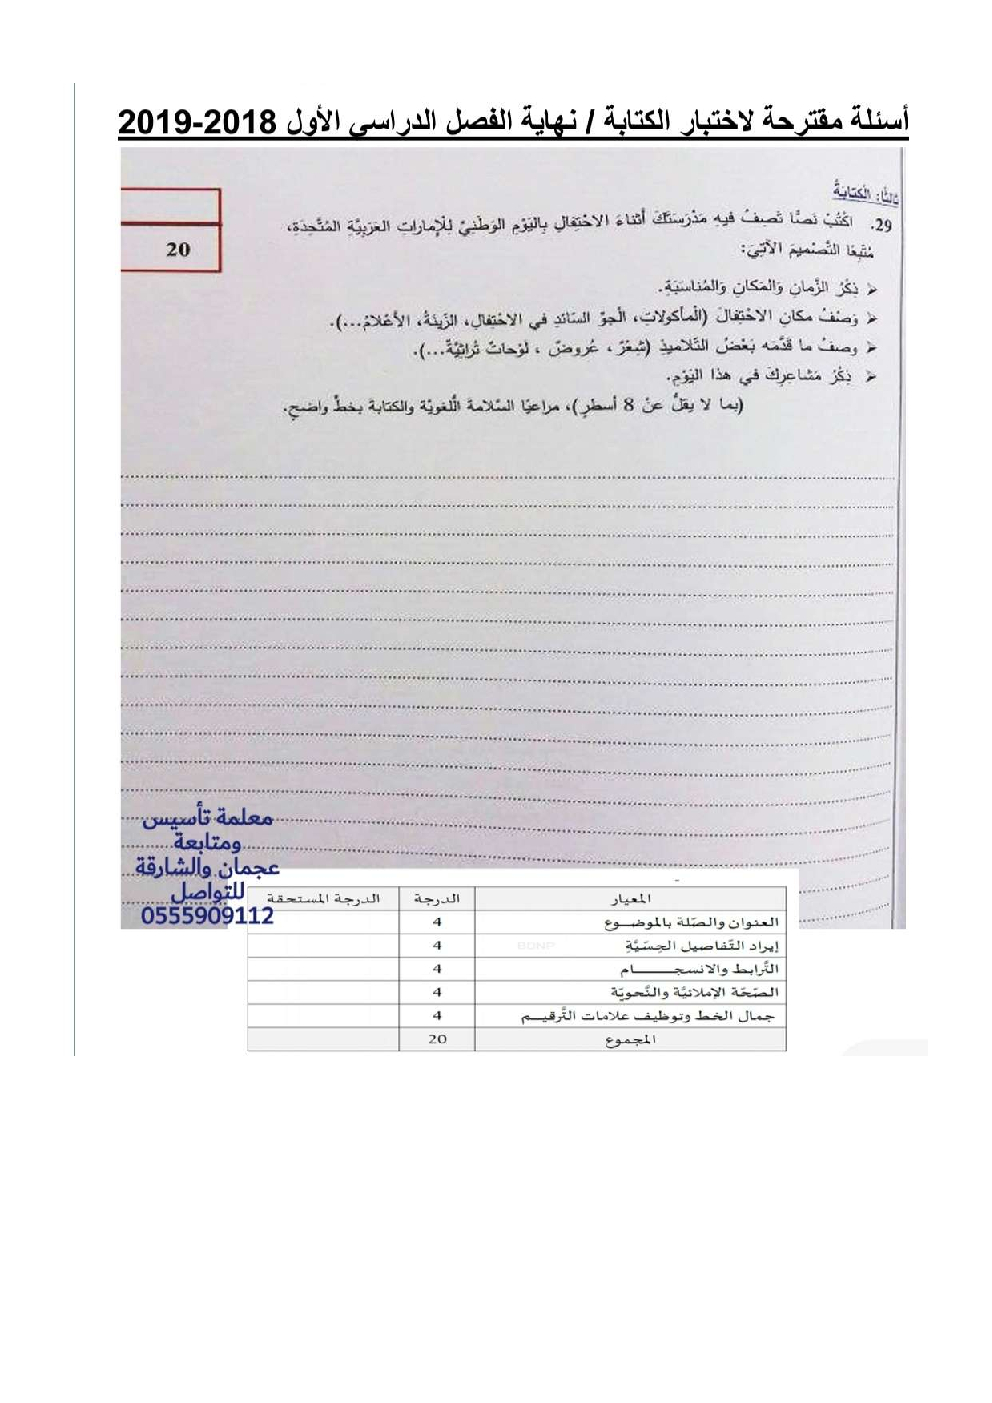 أسئلة مقترحة لاختبار الكتابة / نهاية الفصل الدراسي الأول 2018-2019
ثالثًا: الْكتابةُ
20
29. اكْتُبْ نَصًّا تَصِفُ فيهِ مَدْرَسَتَكَ أثناءَ الاحْتِفالِ بِاليَوْمِ الوَطَنِيِّ لِلْإماراتِ العَرَبِيَّةِ المُتَّحِدَةِ،
مُتَّبِعًا التَّصْميمَ الآتِيَ:
➢ ذِكْرُ الزَّمانِ وَالمَكانِ وَالمُناسَبَةِ.
➢ وَصْفُ مكانِ الاحْتِفالَ (الْمأكولاتِ، الْجوِّ السائدِ في الاحْتِفالِ، الزّينَةُ، الأعْلامُ...).
➢ وصفُ ما قَدَّمَه بَعْضُ التَّلاميذِ (شِعْرٌ ، عُروضٌ ، لَوْحاتٌ تُراثِيَّةٌ...).
➢ ذِكْرُ مَشاعِرِكَ في هذا اليَوْمِ.
(بما لا يقلُّ عنْ 8 أسطرٍ)، مراعيًا السَّلامةَ اللُّغويَّةَ والكتابةَ بخطٍّ واضحٍ.
معلمة تأسيس
ومتابعة
عجمان والشارقة
للتواصل
0555909112
المعيار الدرجة الدرجة المستحقة
العنوان والصّلة بالموضـــوع 4
إيراد التّفاصيل الحِسّيَّة 4
التَّرابط والانسجـــــــام 4
الصّحّة الإملائيَّة والنَّحويّة 4
جمال الخط وتوظيف علامات التَّرقيـــم 4
المجموع 20